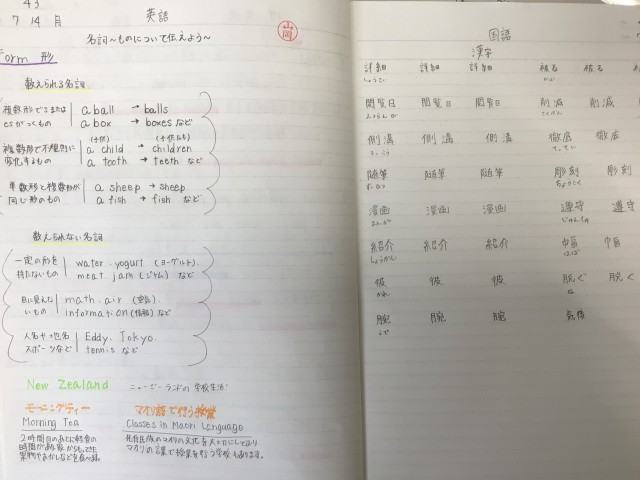 43
7 14 月
英語
名詞~ものについて伝えよう~
山岡
Form 形
数えられる名詞
複数形でsまたは
esがつくもの
a ball → balls
a box → boxes など
複数形で不規則に
変化するもの
(子供) (子供たち)
a child → children
a tooth → teeth など
単数形と複数形が
同じ形のもの
a sheep → sheep
a fish → fish など
数えられない名詞
一定の形を
持たないもの
water. yogurt (ヨーグルト).
meat. jam (ジャム) など
目に見えな
いもの
math. air (空気).
information (情報) など
人名や地名
スポーツなど
Eddy. Tokyo.
tennis など
New Zealand
ニュージーランドの学校生活!
モーニングティー
Morning Tea
2時間目のあとに軽食の
マオリ語で行う授業
Classes in Maori Language
先住民族のマオリの文化を大切にしており
マオリの言葉で授業を行う学校もあります。
国語
漢字
詳細 詳細 詳細 被る 被る 被
しょうさい
閲覧 閲覧 閲覧 削減 削減
さくげん
側溝 側溝 側溝 徹底 徹底
そっこう てってい
随筆 随筆 随筆 彫刻 彫刻
ずいひつ ちょうこく
漫画 漫画 漫画 遵守 遵守
まんが じゅんしゅ
紹介 紹介 紹介
しょうかい はば
彼 彼 彼 脱ぐ 脱ぐ
かれ ぬ
腕 腕 腕
うで